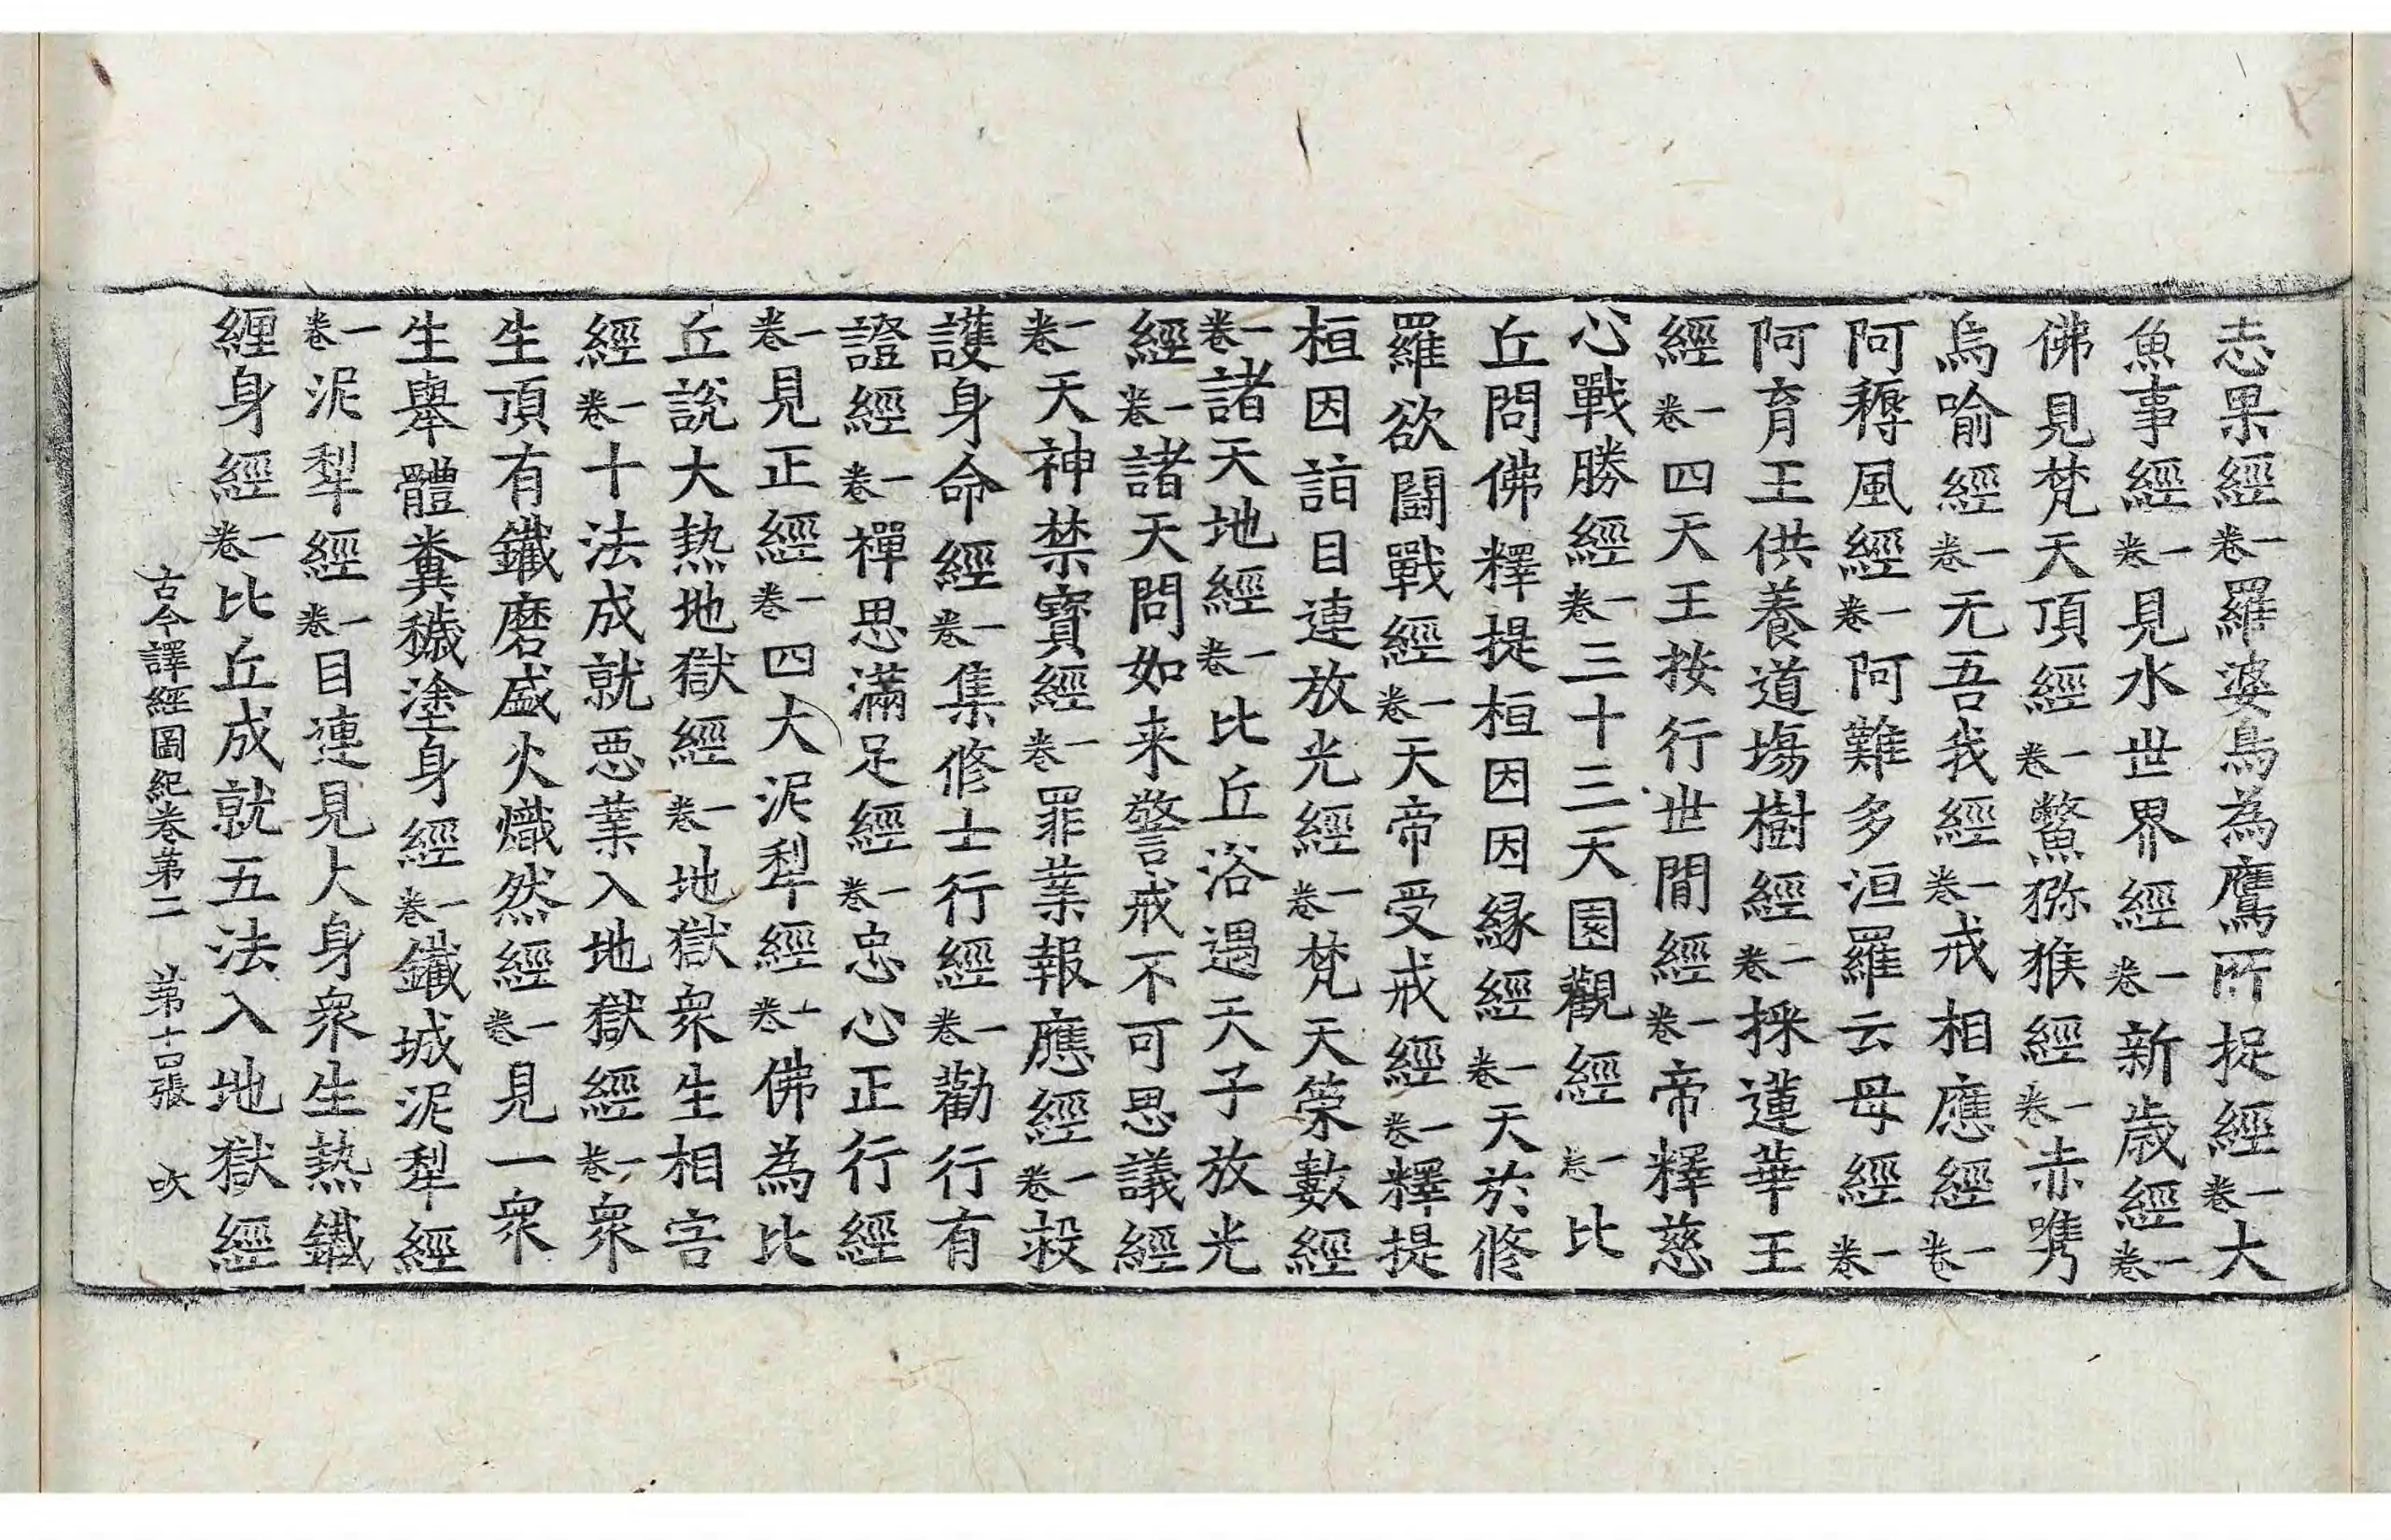 志果經一卷羅婆鳥為鷹所捉經一卷大
魚事經一卷見水世界經一卷新歲經一卷
佛見梵天頂經一卷鱉獼猴經一卷赤嘴
烏喻經一卷无吾我經一卷戒相應經一卷
阿耨風經一卷阿難多洹羅云母經一卷
阿育王供養道場樹經一卷採蓮華王
經一卷四天王按行世間經一卷帝釋慈
心戰勝經一卷三十三天園觀經一卷比
丘問佛釋提桓因因緣經一卷天於修
羅欲鬪戰經一卷天帝受戒經一卷釋提
桓因詣目連放光經一卷梵天策數經
一卷諸天地經一卷比丘浴遇天子放光
經一卷諸天問如来警戒不可思議經
一卷天神禁寶經一卷罪業報應經一卷殺
護身命經一卷集修士行經一卷勸行有
證經一卷禪思滿足經一卷忠心正行經
一卷見正經一卷四大泥犁經一卷佛為比
丘說大熱地獄經一卷地獄衆生相害
經一卷十法成就惡業入地獄經一卷衆
生頂有鐵磨盛火熾然經一卷見一衆
生舉體糞穢塗身經一卷鐵城泥犁經
一卷泥犁經一卷目連見大身衆生熱鐵
纒身經一卷比丘成就五法入地獄經
古今譯經圖紀卷第二 第十四張